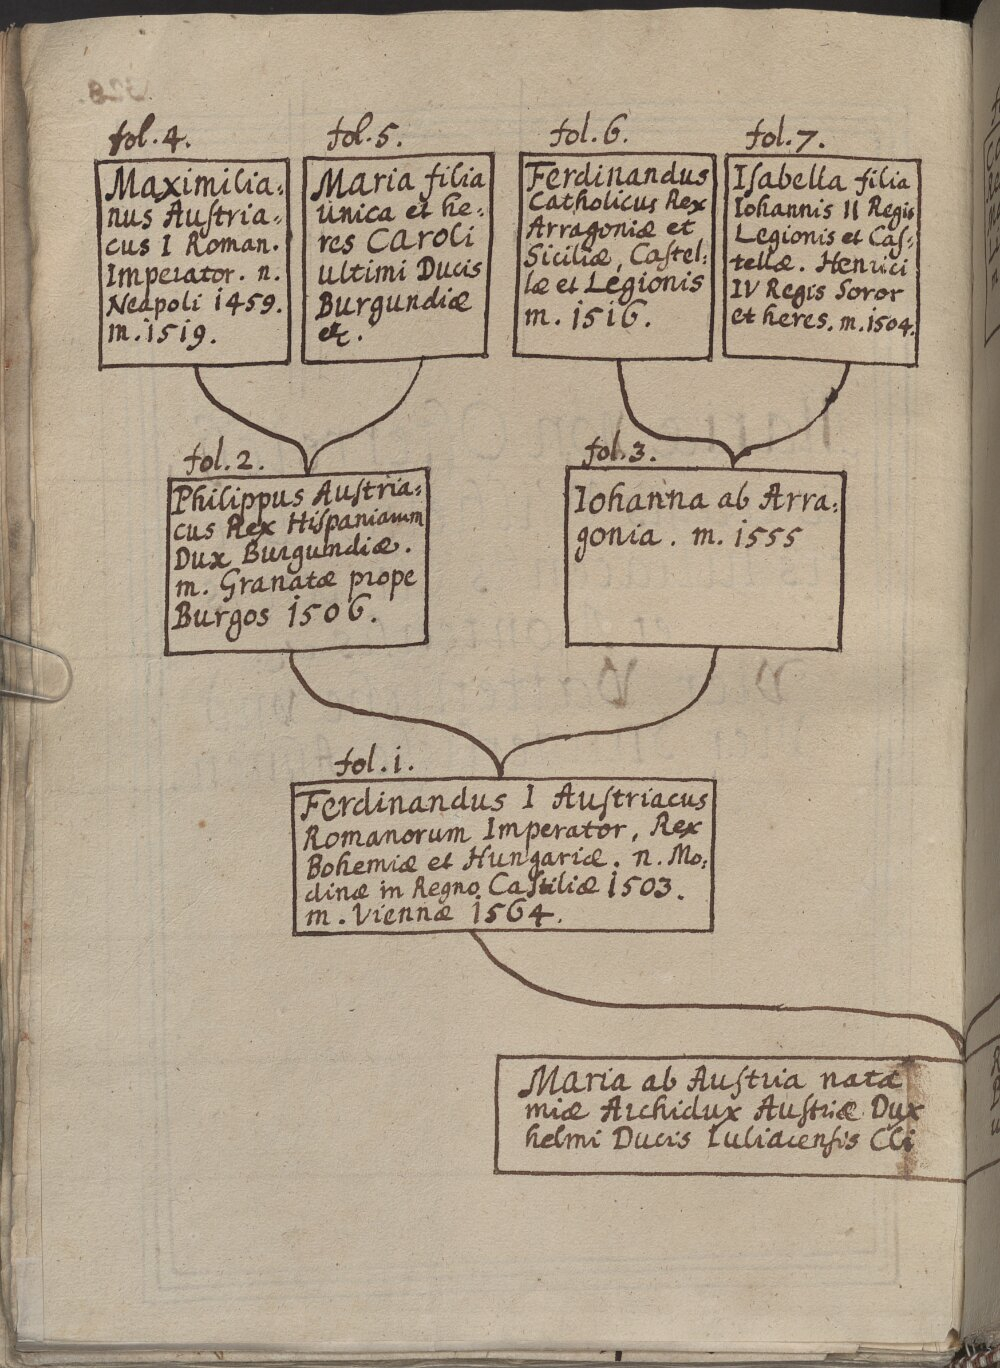 fol. 4.
Maximilia:
nus Auſtria:
cus I Roman.
Imperator. n.
Neapoli 1459.
m. 1519.
fol. 5.
Maria filia
unica et he:
res Caroli
ultimi Ducis
Burgundiæ
etc.
fol. 6.
Ferdinandus
Catholicus Rex
Arragoniæ et
Siciliæ, Caſtel:
læ et Legionis
m. 1516.
fol. 7.
Iſabella filia
Iohannis II Regis
Legionis et Caſ:
tellæ. Henrici
IV Regis Soror
et heres. m. 1504.
fol. 2.
Philippus Auſtria:
cus Rex Hiſpaniarum
Dux Burgundiæ.
m. Granatæ prope
Burgos 1506.
fol. 3.
Iohanna ab Arra:
gonia. m. 1555
fol. 1.
Ferdinandus I Auſtriacus
Romanorum Imperator, Rex
Bohemiæ et Hungariæ. n. Mo:
dinæ in Regno Caſtiliæ 1503.
m. Viennæ 1564.
Maria ab Auſtria nata
miæ Archidux Auſtriæ Dux
helmi Ducis Iuliacenſis Cli